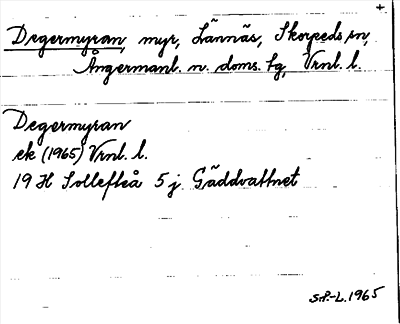 +
Degermyran, myr, Lännäs, Skorpeds sn,
Ångermanl. n. doms. tg, Vrnl. l.
Degermyran
ek (1965) Vrnl. l.
19 H Sollefteå 5 j Gäddvattnet
S.P.-L. 1965